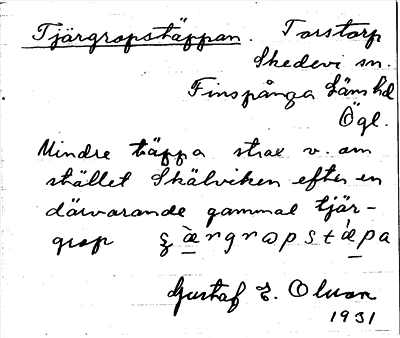 Tjärgropstäppan. Torstorp
Skedevi sn.
Finspånga Läns hd
Ögl.
Mindre täppa strax v. om
stället Skälviken efter en
därvarande gammal tjär-
grop ʂæ̀rgropstǽpa
Gustaf E. Olson
1931